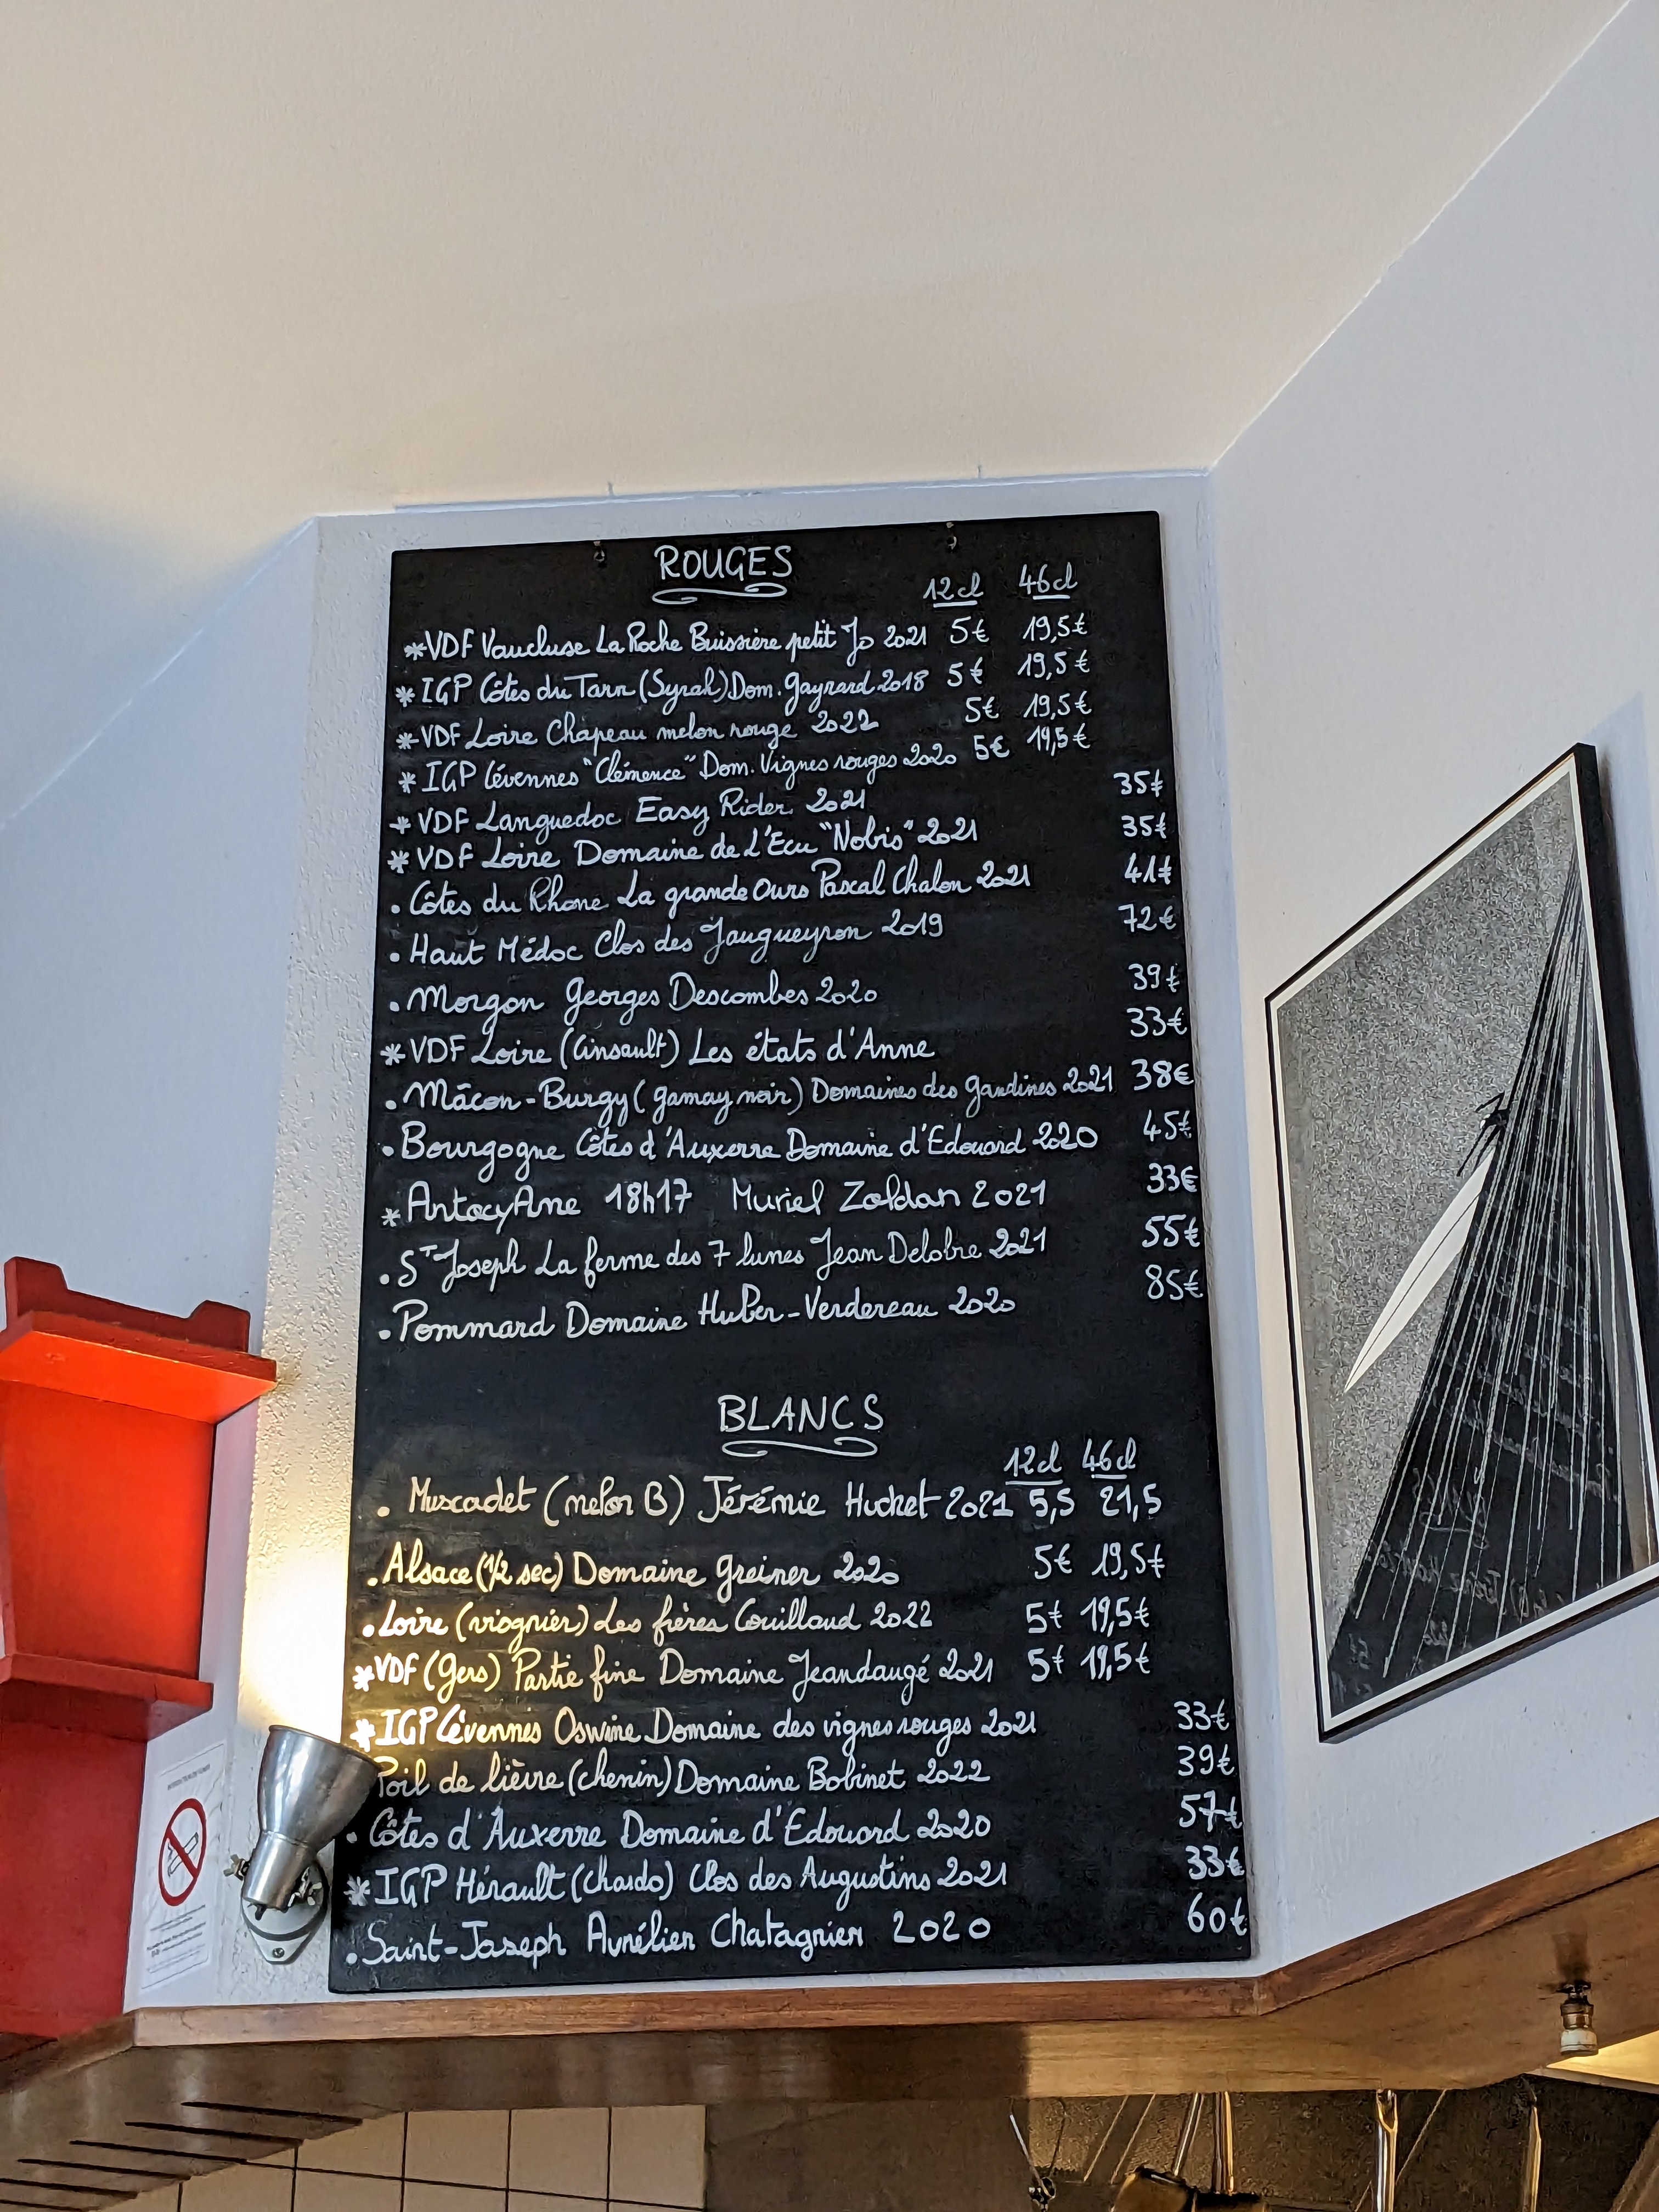 ROUGES
12cl 46cl
*VDF Vaucluse La Roche Buissière petit Jo 2021 5€ 19,5€
* IGP Côtes du Tarn (Syrah) Dom. Gayrard 2018 5€ 19,5€
*VDF Loire Chapeau melon rouge 2022 5€ 19,5€
* IGP Cévennes "Clémence" Dom. Vignes rouges 2020 5€ 19,5€
* VDF Languedoc Easy Rider 2021 35€
* VDF Loire Domaine de L'Ecu "Nobis" 2021 35€
. Côtes du Rhone La grande Ours Pascal Chalon 2021 41€
. Haut Médoc Clos des Jaugueyron 2019 72€
. Morgon Georges Descombes 2020 39€
* VDF Loire (Cinsault) Les états d'Anne 33€
. Mâcon-Burgy (gamay noir) Domaines des Gandines 2021 38€
. Bourgogne Côtes d'Auxerre Domaine d'Edouard 2020 45€
* AntocyAme 18h17 Muriel Zoldan 2021 33€
. ST Joseph La ferme des 7 lunes Jean Delobre 2021 55€
. Pommard Domaine Huber-Verdereau 2020 85€
BLANCS
12cl 46cl
. Muscadet (melon B) Jérémie Huchet 2021 5,5 21,5
. Alsace (1/2 sec) Domaine Greiner 2020 5€ 19,5€
. Loire (viognier) Les frères Couillaud 2022 5€ 19,5€
*VDF (Gers) Partie fine Domaine Jeandaugé 2021 5€ 19,5€
* IGP Cévennes Oswine Domaine des vignes rouges 2021 33€
Poil de lièvre (chenin) Domaine Bobinet 2022 39€
. Côtes d'Auxerre Domaine d'Edouard 2020 57€
* IGP Hérault (Chardo) Clos des Augustins 2021 33€
. Saint-Joseph Aurélien Chatagnier 2020 60€